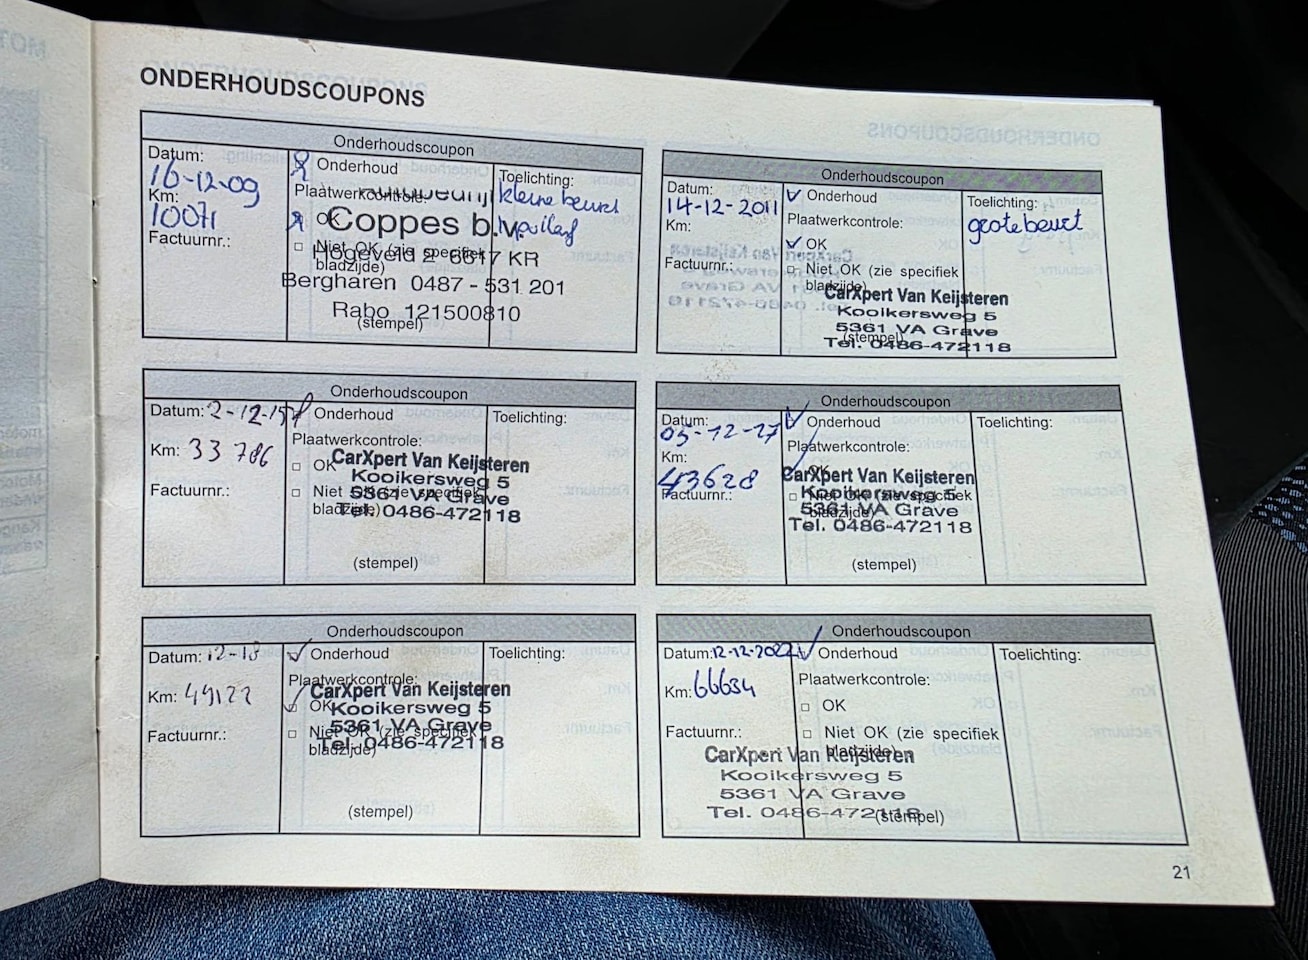 ONDERHOUDSCOUPONS
Onderhoudscoupon
Datum:
16-12-09
Km:
10071
Factuurnr.:
Onderhoud
Plaatwerkcontrole:
OK
Niet OK (zie specifiek
bladzijde)
(stempel)
Toelichting:
kleine beurt
Coppes b.v.
Hogeveld 2 6617 KR
Bergharen 0487 - 531 201
Rabo 121500810
Onderhoudscoupon
Datum:
14-12-2011
Km:
Factuurnr.:
Onderhoud
Plaatwerkcontrole:
OK
Niet OK (zie specifiek
bladzijde)
(stempel)
Toelichting:
grote beurt
CarXpert Van Keijsteren
Kooikersweg 5
5361 VA Grave
Tel. 0486-472118
Onderhoudscoupon
Datum: 2-12-15
Km: 33 786
Factuurnr.:
Onderhoud
Plaatwerkcontrole:
OK
Niet OK (zie specifiek
bladzijde)
(stempel)
Toelichting:
CarXpert Van Keijsteren
Kooikersweg 5
5361 VA Grave
Tel. 0486-472118
Onderhoudscoupon
Datum:
Km:
43628
Factuurnr.:
Onderhoud
Plaatwerkcontrole:
OK
Niet OK (zie specifiek
bladzijde)
(stempel)
Toelichting:
CarXpert Van Keijsteren
Kooikersweg 5
5361 VA Grave
Tel. 0486-472118
Onderhoudscoupon
Datum: 12-18
Km: 49122
Factuurnr.:
Onderhoud
Plaatwerkcontrole:
OK
Niet OK (zie specifiek
bladzijde)
(stempel)
Toelichting:
CarXpert Van Keijsteren
Kooikersweg 5
5361 VA Grave
Tel. 0486-472118
Onderhoudscoupon
Datum: 12-12-2022
Km: 66634
Factuurnr.:
Onderhoud
Plaatwerkcontrole:
OK
Niet OK (zie specifiek
bladzijde)
(stempel)
Toelichting:
CarXpert Van Keijsteren
Kooikersweg 5
5361 VA Grave
Tel. 0486-472118
21